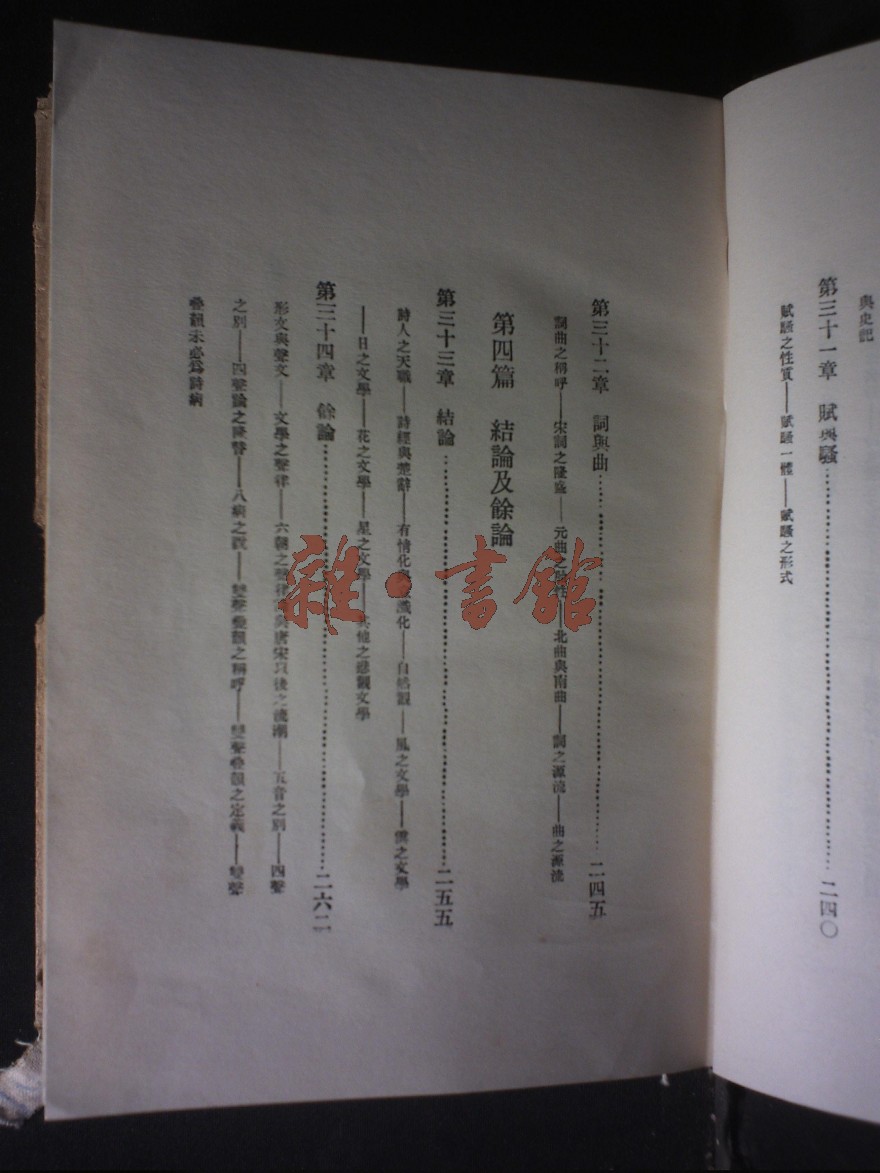 與史記
第三十一章 賦與騷……二四〇
賦騷之性質——賦騷一體——賦騷之形式
第三十二章 詞與曲……二四五
詞曲之稱呼——宋詞之隆盛——元曲之——北曲與南曲——詞之源流——曲之源流
第四篇 結論及餘論
第三十三章 結論……二五五
詩人之天職——詩經與楚辭——有情化與化——自然觀——風之文學——雲之文學
——日之文學——花之文學——星之文學——其他之悲觀文學
第三十四章 餘論……二六二
形文與聲文——文學之聲律——六朝之聲律與唐宋以後之流潮——五音之別——四聲
之別——四聲論之隆替——八病之說——雙聲疊韻之稱呼——雙聲疊韻之定義——雙聲
疊韻未必為詩病
雜·書館